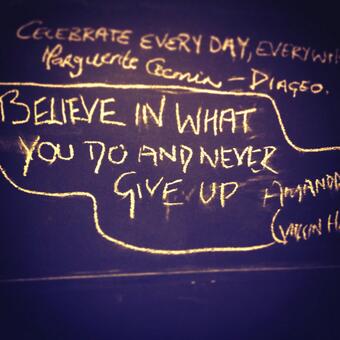 CELEBRATE EVERY DAY, EVERYWH
Marguerite - DIAGEO.
BELIEVE IN WHAT
YOU DO AND NEVER
GIVE UP
AMANDA
(VIRGIN H